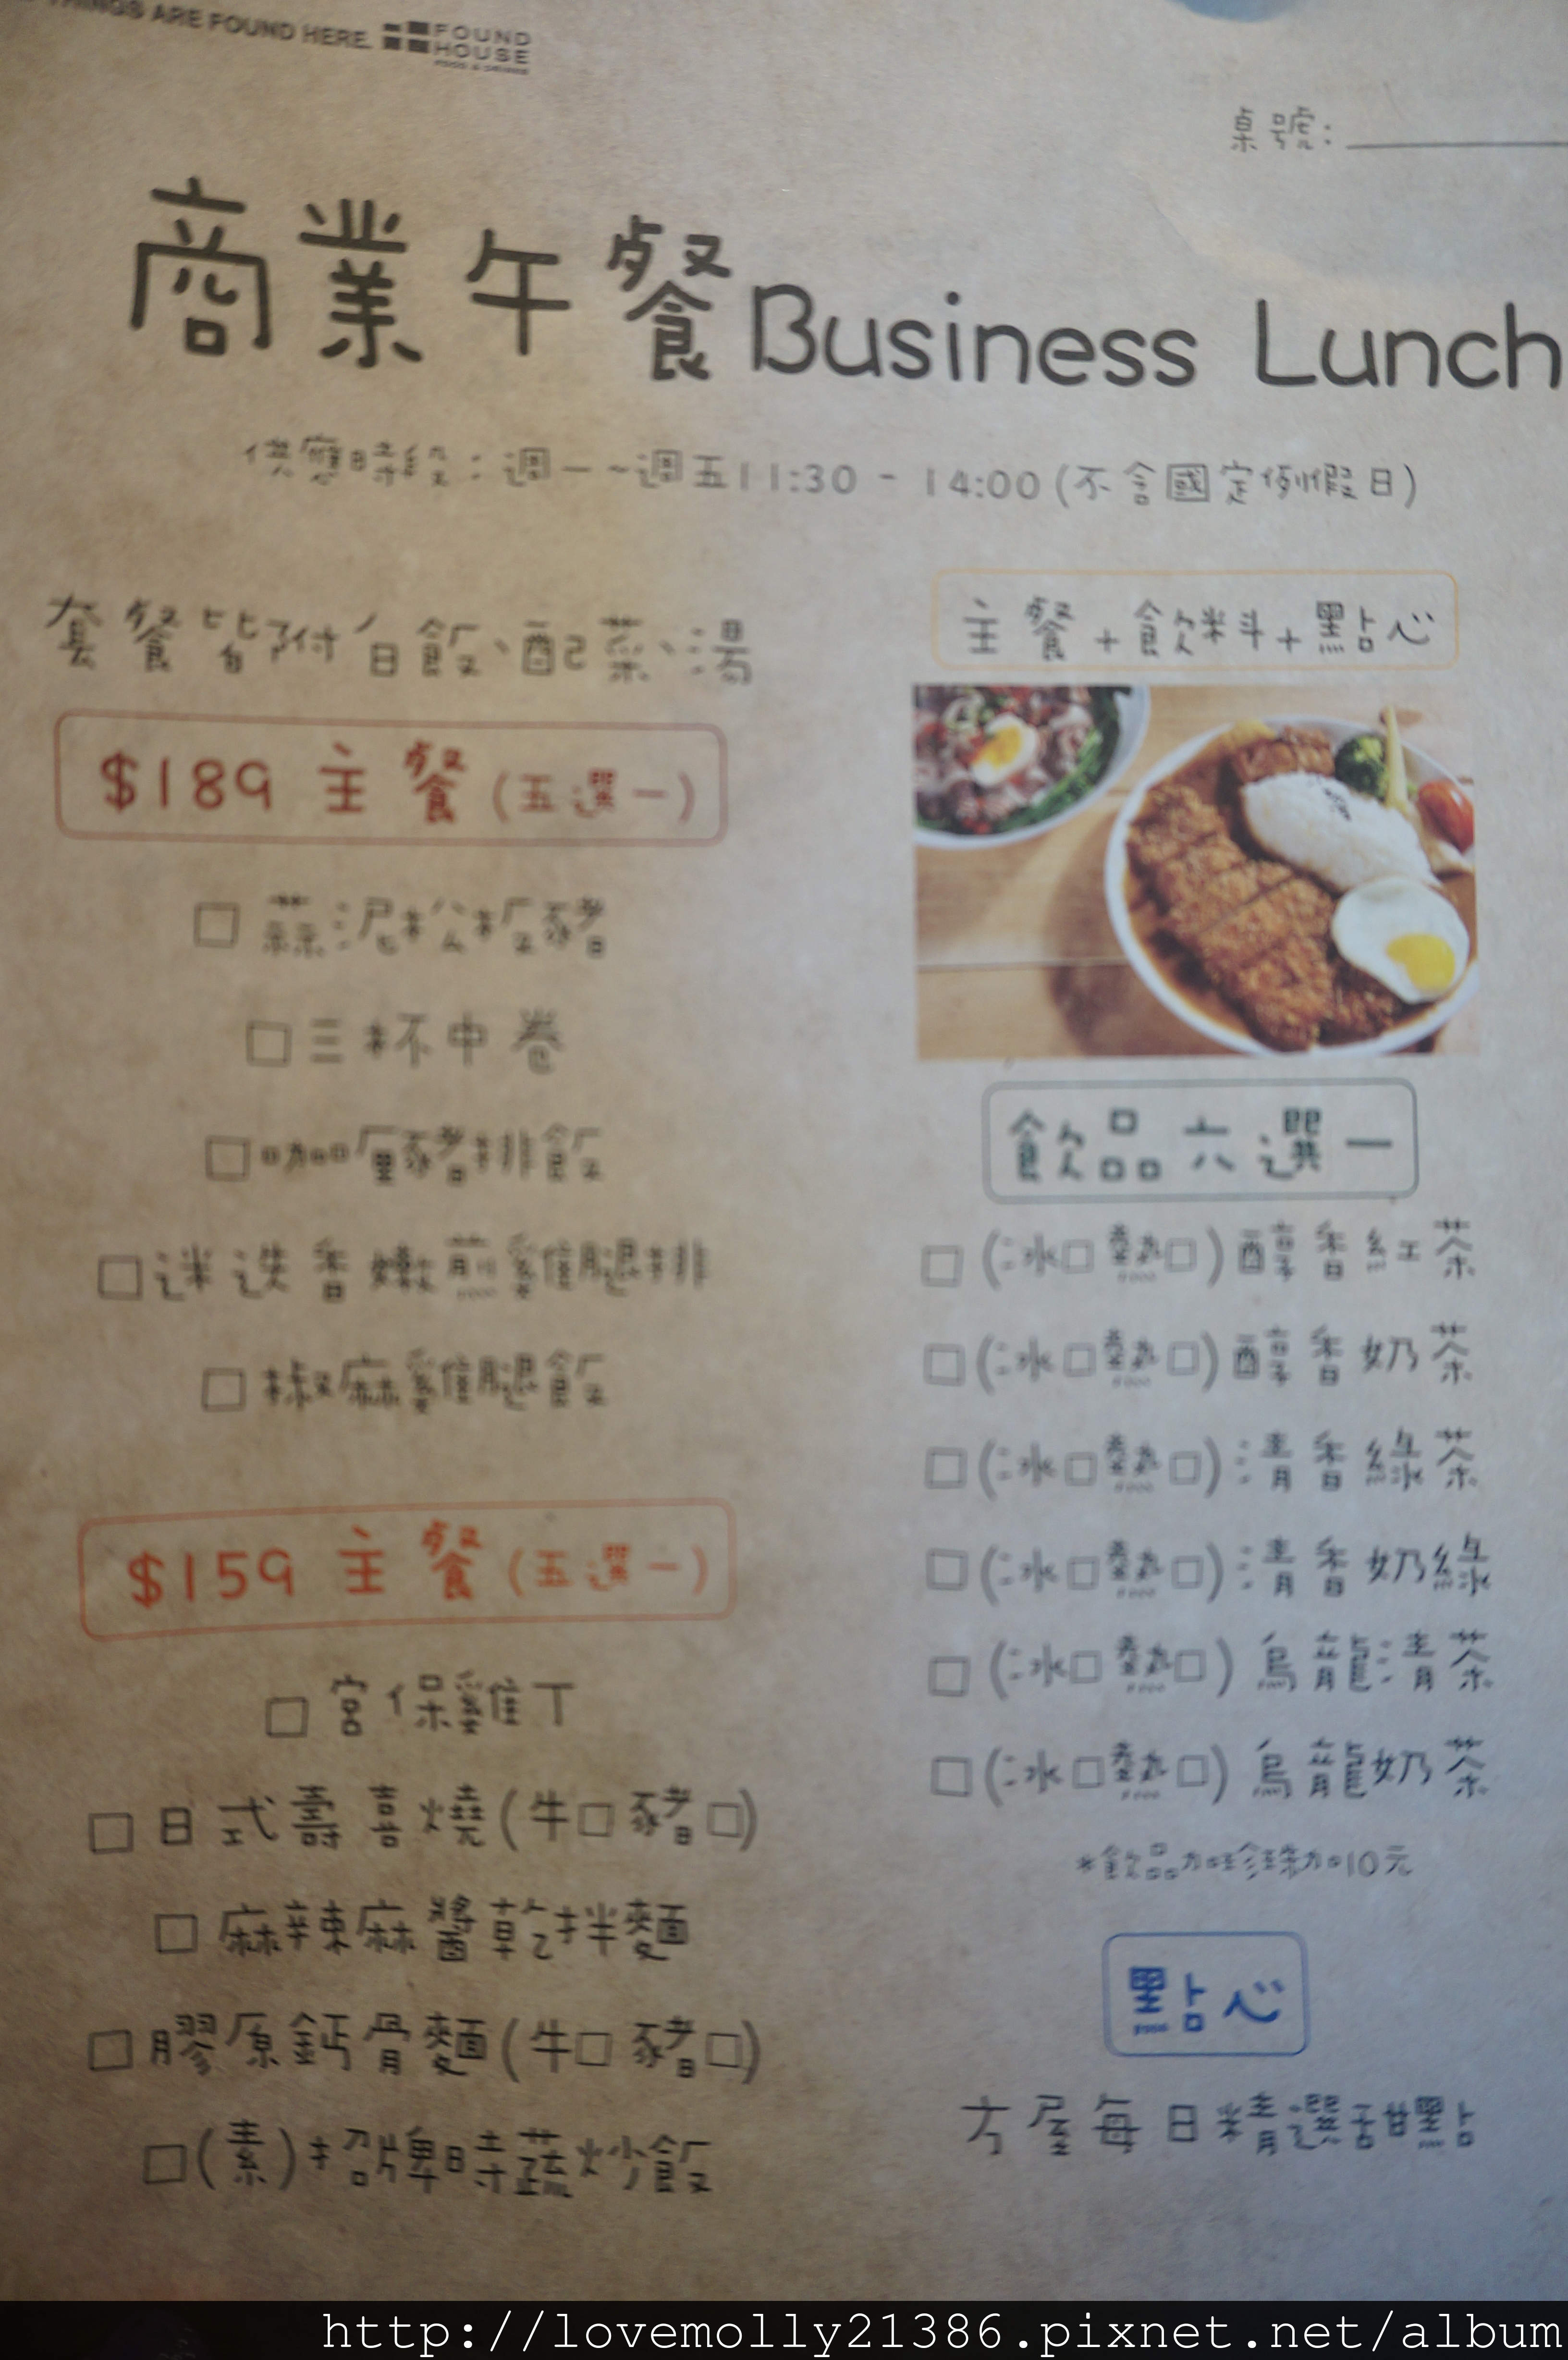 THINGS ARE FOUND HERE.
FOUND
HOUSE
桌號:
商業午餐Business Lunch
供應時段:週一~週五11:30 - 14:00(不含國定例假日)
套餐皆附白飯、配菜、湯
$189 主餐(五選一)
□ 蒜泥松板豬
□ 三杯中卷
□ 咖哩豬排飯
□ 迷迭香嫩煎雞腿排
□ 椒麻雞腿飯
$159 主餐(五選一)
□ 宮保雞丁
□ 日式壽喜燒(牛□ 豬□)
□ 麻辣麻醬乾拌麵
□ 膠原鈣骨麵(牛□ 豬□)
□(素)招牌時蔬炒飯
主餐+飲料+點心
飲品六選一
□ (冰□熱□)醇香紅茶
□ (冰□熱□)醇香奶茶
□ (冰□熱□)清香綠茶
□ (冰□熱□)清香奶綠
□ (冰□熱□)烏龍清茶
□ (冰□熱□)烏龍奶茶
*飲品加珍珠加10元
點心
方屋每日精選甜點
http://lovemolly21386.pixnet.net/album